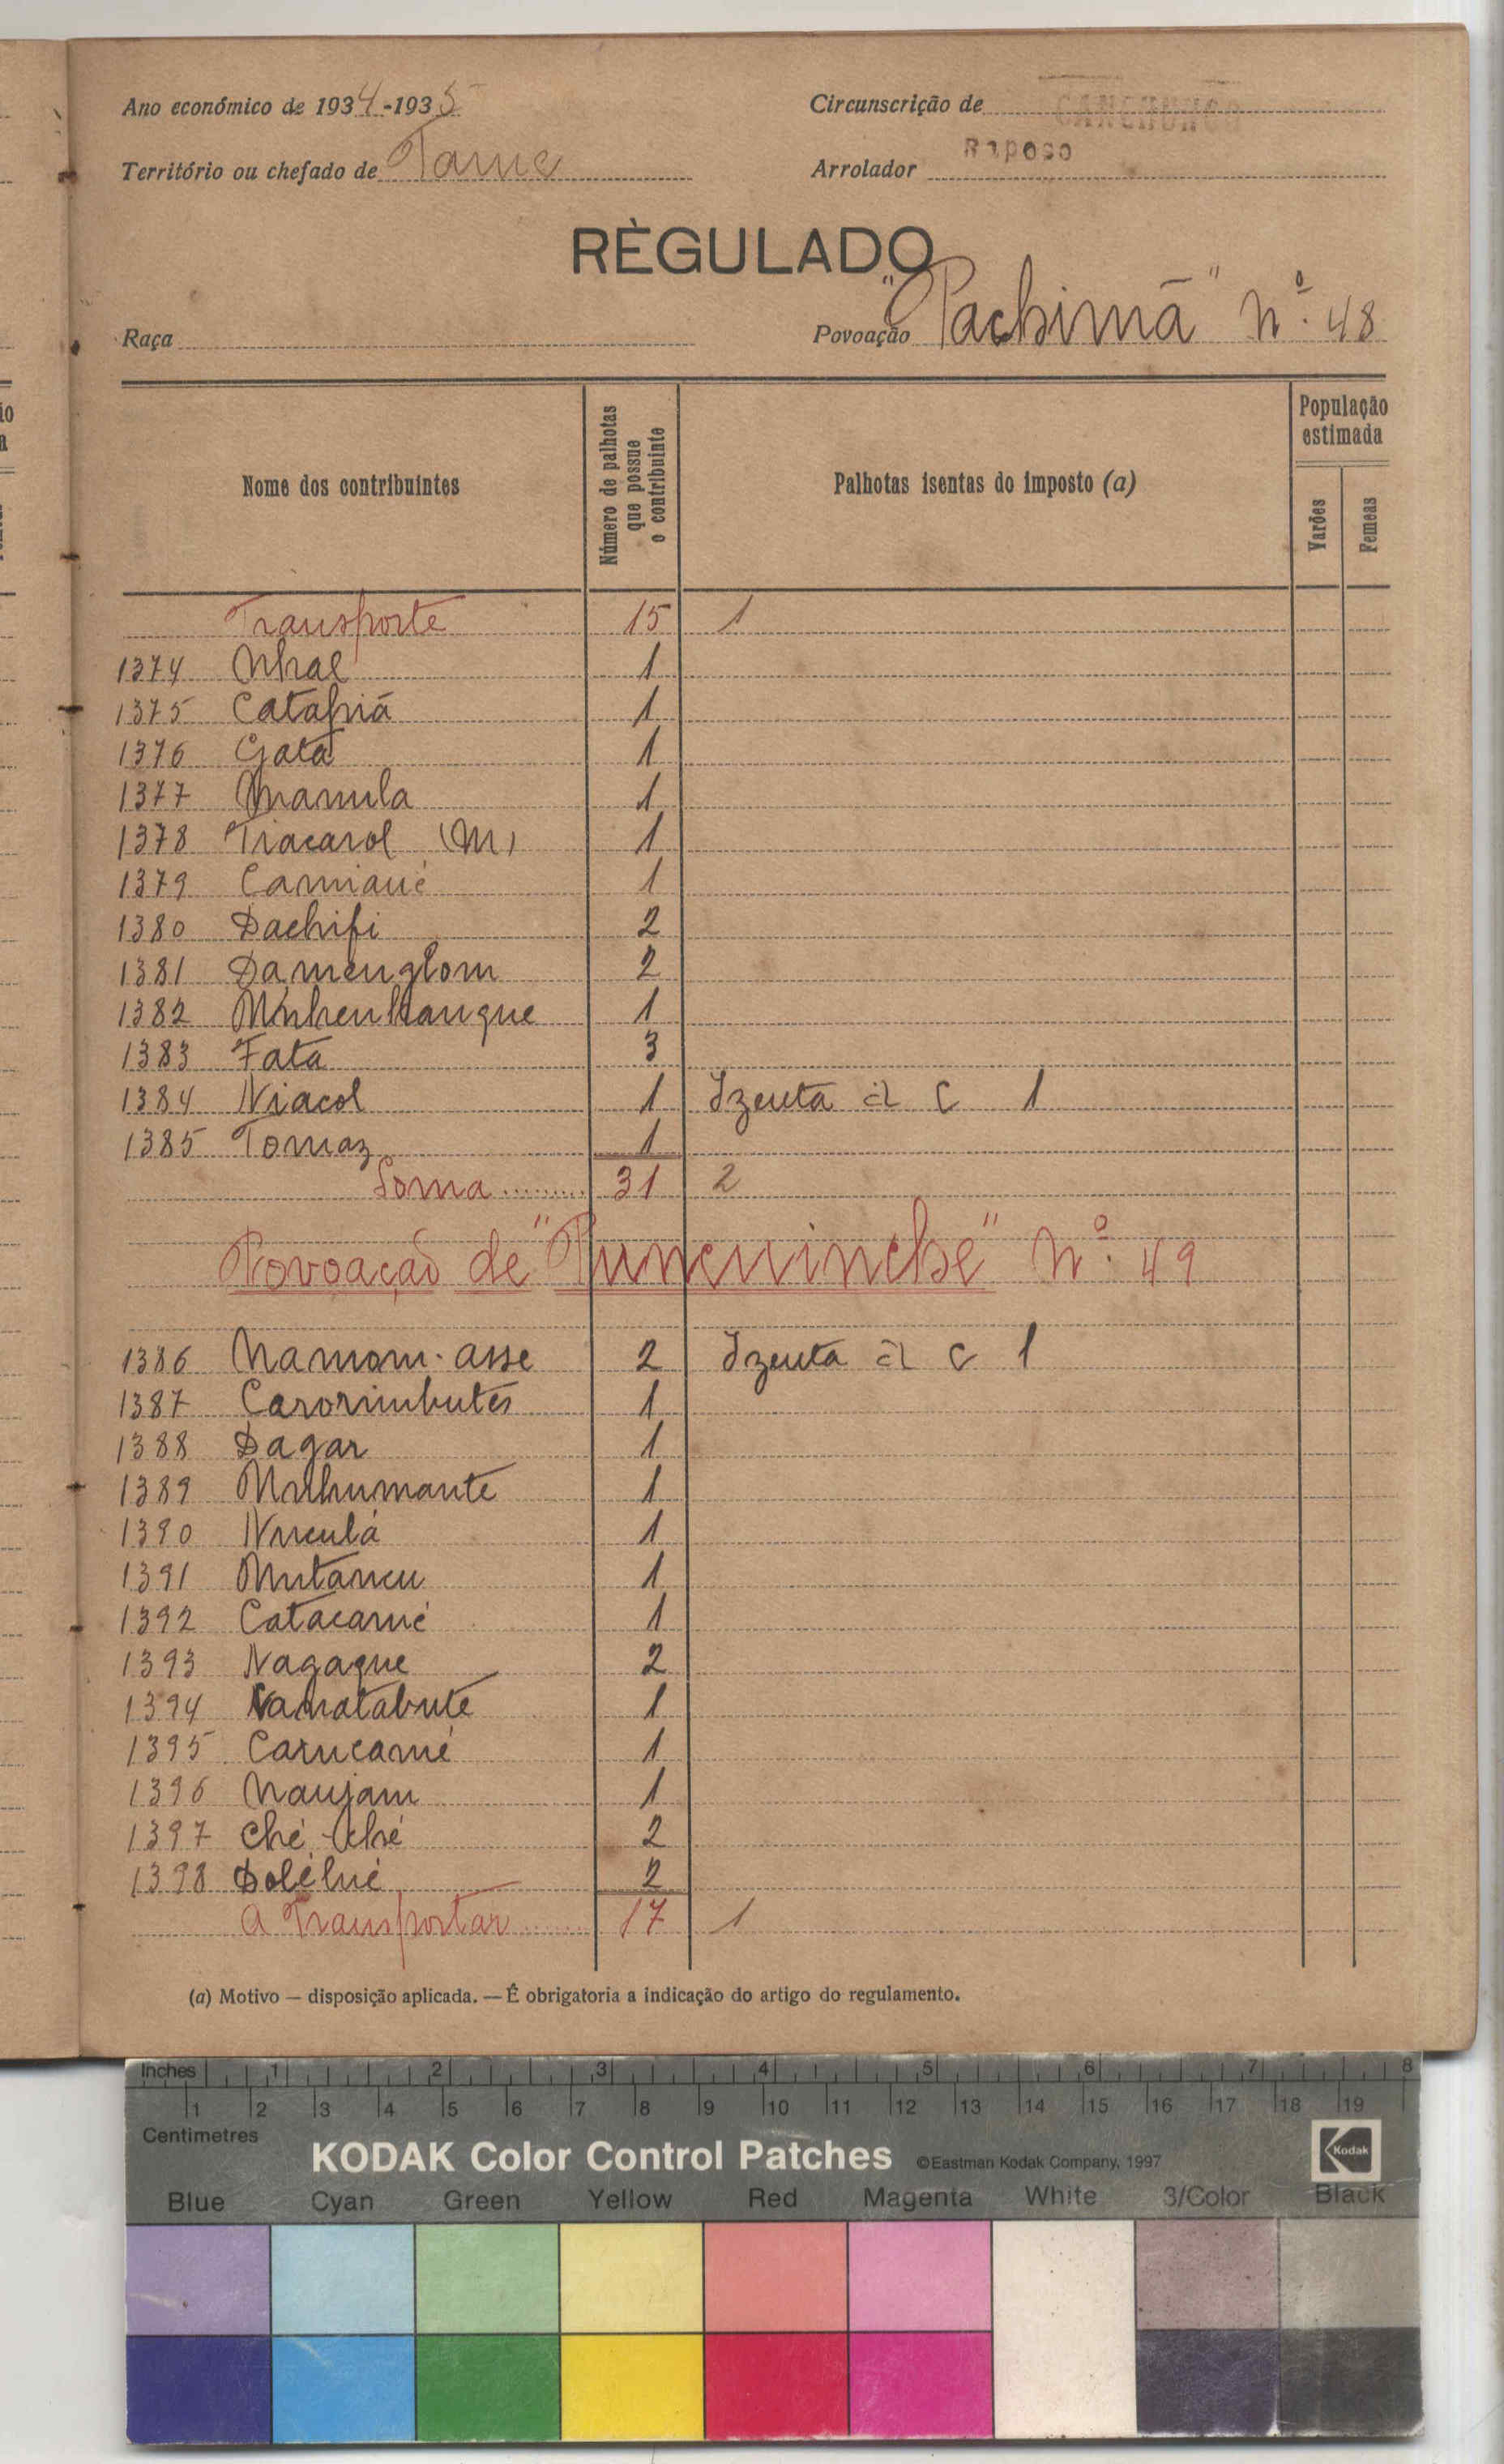 Ano económico de 1934-1935
Circunscrição de CANCHUNGO
Território ou chefado de Tame
Arrolador Raposo
RÈGULADO
Raça
Povoação "Pachimã" Nº. 48
Nome dos contribuintes
Número de palhotas que possue o contribuinte
Palhotas isentas do imposto (a)
População estimada
Varões
Femeas
Transporte 15 1
1374 Nhal 1
1375 Catapiã 1
1376 Gata 1
1377 Manula 1
1378 Tiacarol (M) 1
1379 Camiaué 1
1380 Dachifi 2
1381 Damenglom 2
1382 1
1383 Fata 3
1384 Niacol 1 Izenta al c 1
1385 Tomaz 1
Soma 31 2
Povoação de "Puncuinche" Nº. 49
1386 Namom-asse 2 Izenta al c 1
1387 Carorimbutes 1
1388 Dagar 1
1389 Mnhumante 1
1390 1
1391 Mutancu 1
1392 Catacamé 1
1393 Nagaque 2
1394 Namatabute 1
1395 Carucamé 1
1396 Naujam 1
1397 Ché-ché 2
1398 Dolélué 2
A Transportar 17 1
(a) Motivo — disposição aplicada. — É obrigatoria a indicação do artigo do regulamento.
Inches 1 2 3 4 5 6 7 8
1 2 3 4 5 6 7 8 9 10 11 12 13 14 15 16 17 18 19
Centimetres
KODAK Color Control Patches ©Eastman Kodak Company, 1997 Kodak
Blue Cyan Green Yellow Red Magenta White 3/Color Black